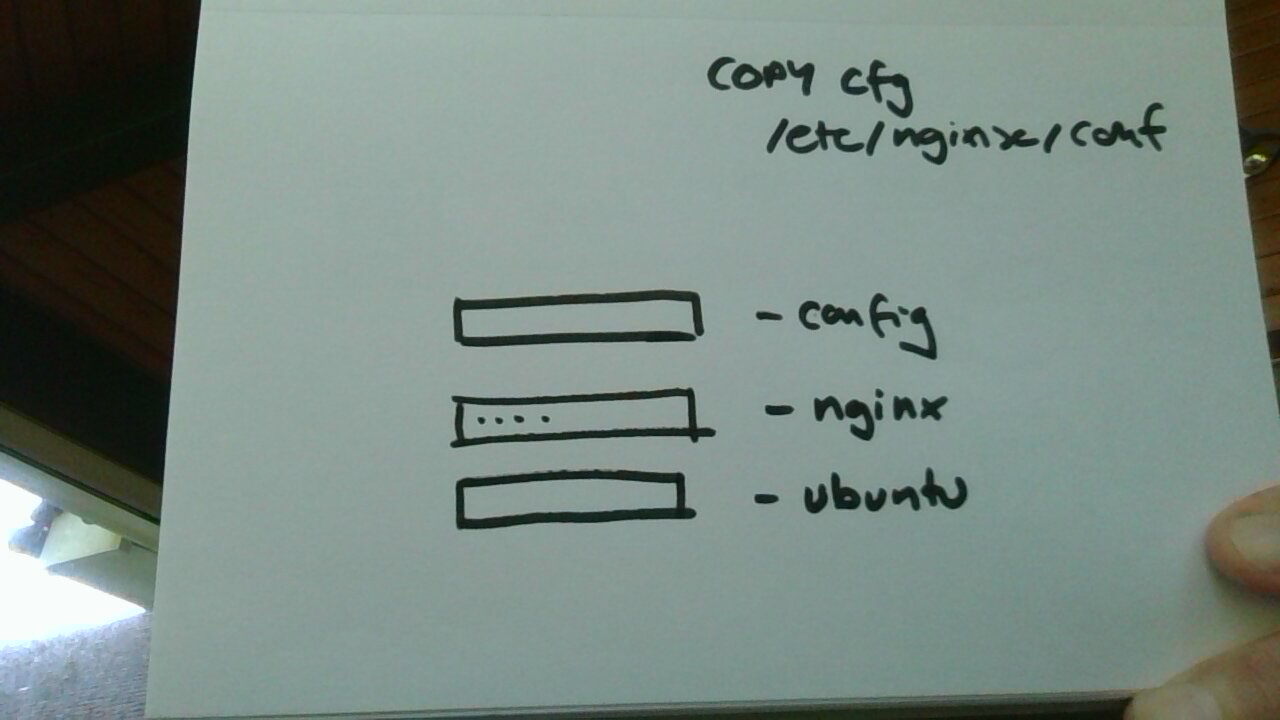 COPY cfg
/etc/nginx/conf
- config
- nginx
- ubuntu